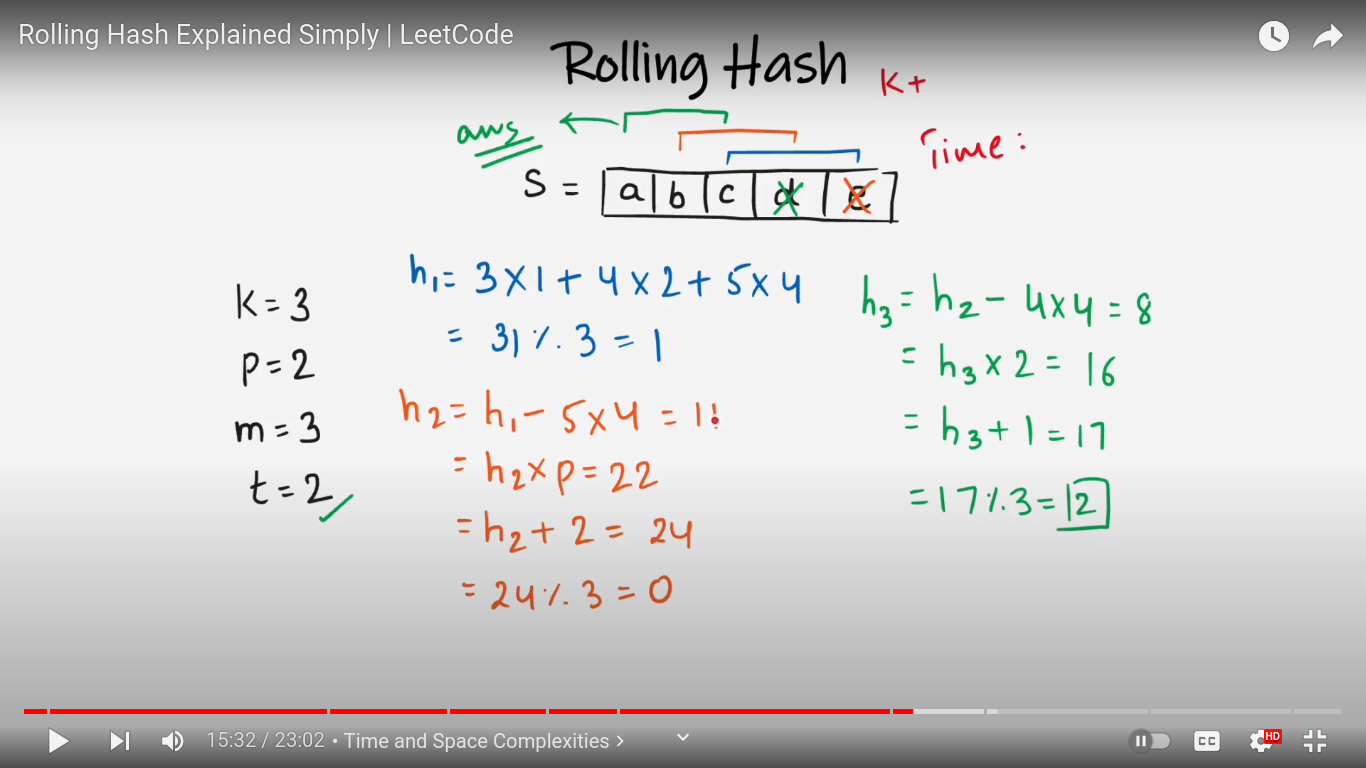 Rolling Hash Explained Simply | LeetCode
Rolling Hash
K+
Time :
ans
S = a b c d e
K = 3
p = 2
m = 3
t = 2
h₁ = 3 x 1 + 4 x 2 + 5 x 4
= 31 % 3 = 1
h₂ = h₁ - 5 x 4 = 11
= h₂ x p = 22
= h₂ + 2 = 24
= 24 % 3 = 0
h₃ = h₂ - 4 x 4 = 8
= h₃ x 2 = 16
= h₃ + 1 = 17
= 17 % 3 = 2
15:32 / 23:02 • Time and Space Complexities >
CC
HD